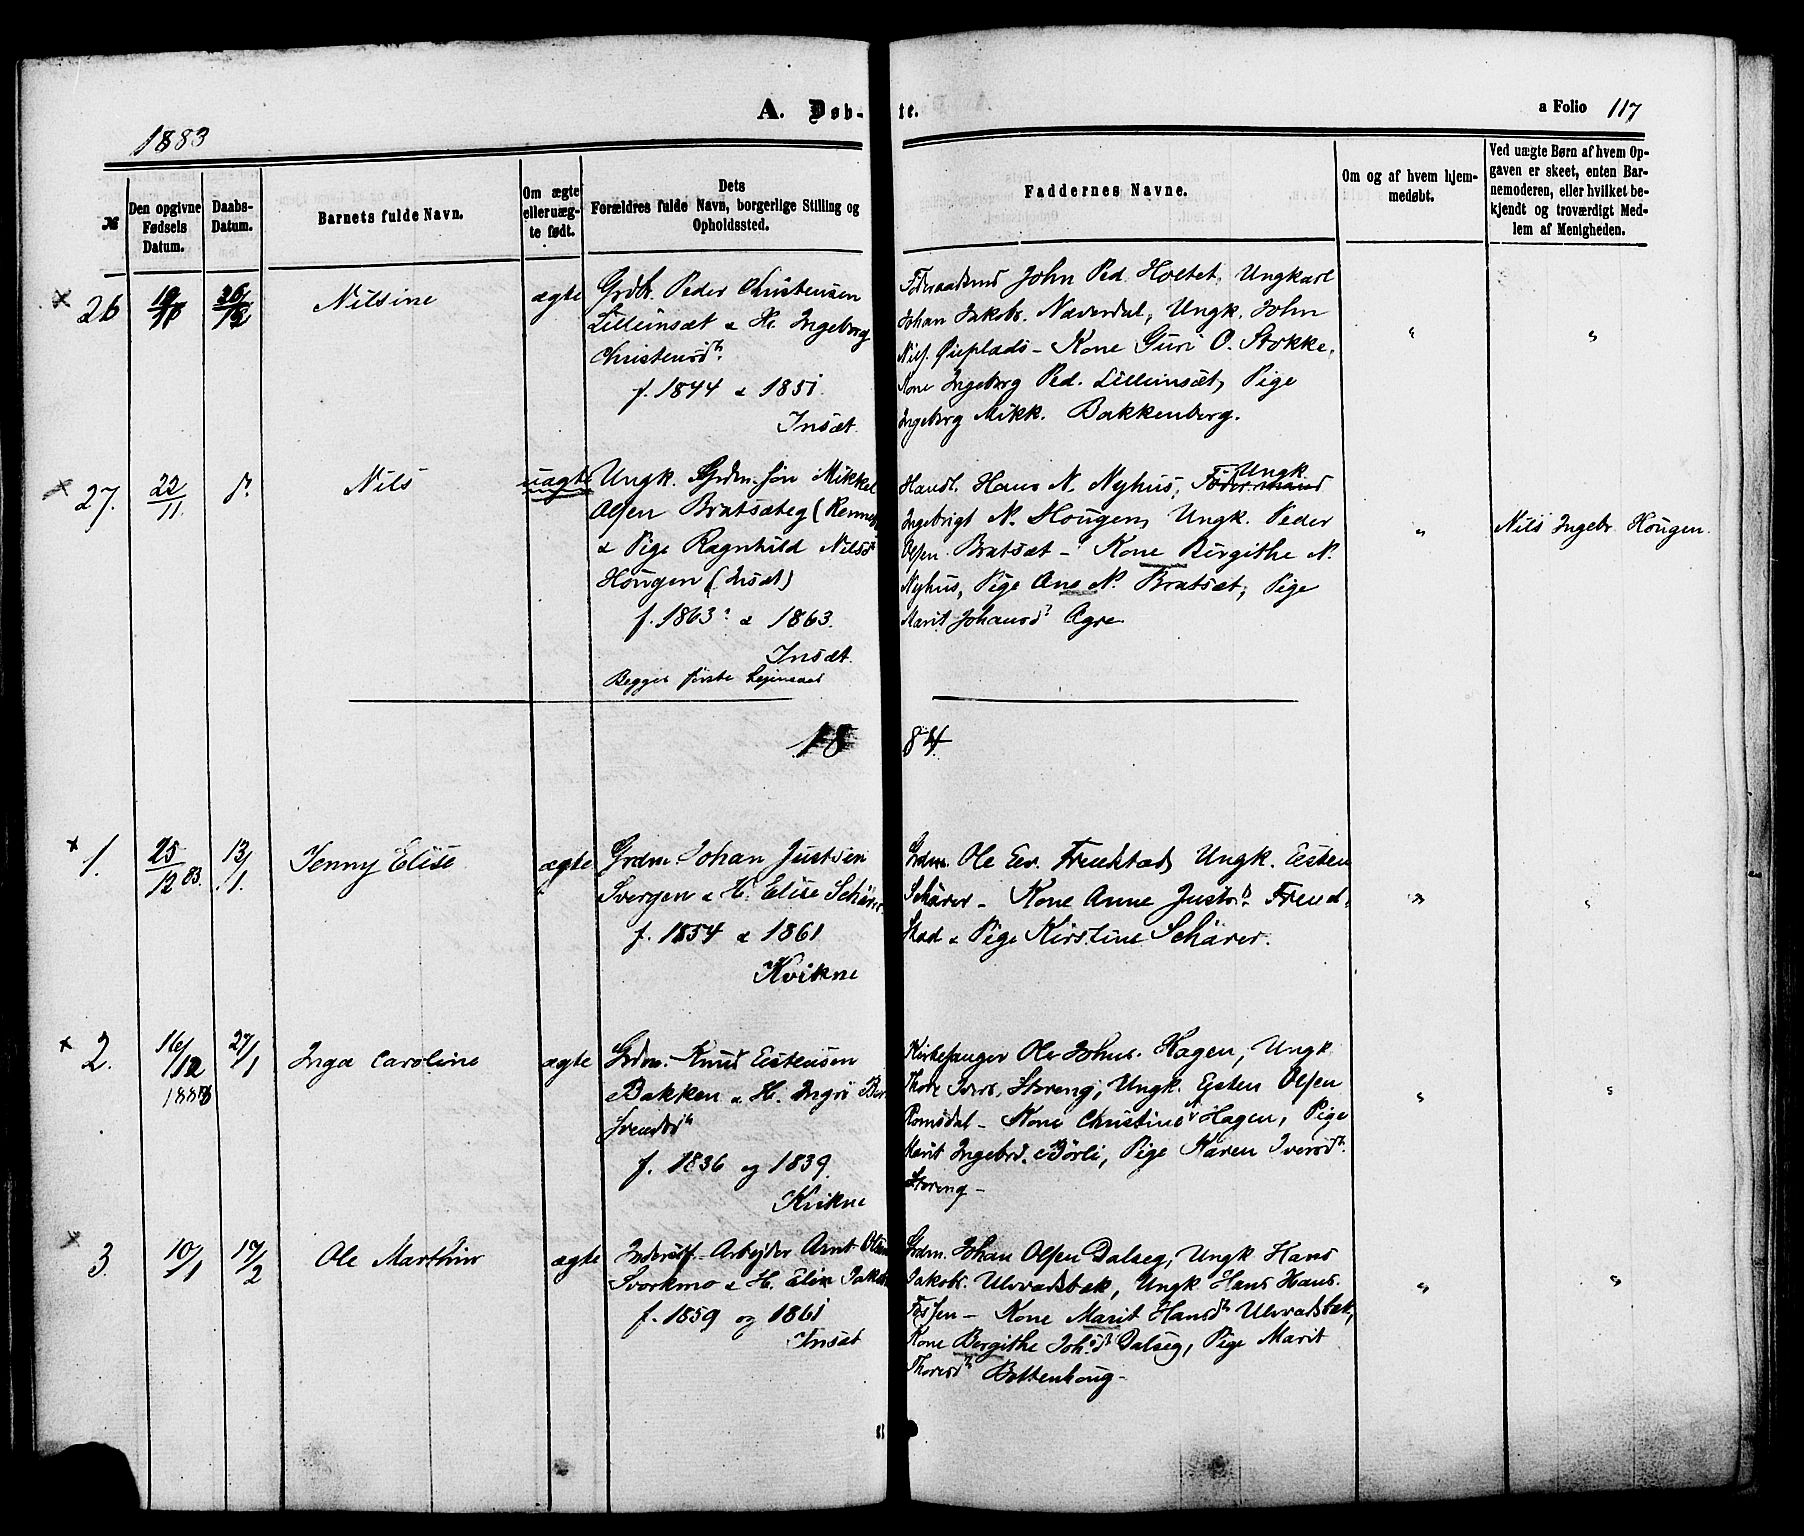 1883
A. Døbte.
a Folio 117
№
Den opgivne Fødsels Datum.
Daabs-Datum.
Barnets fulde Navn.
Om ægte eller uægte født.
Dets Forældres fulde Navn, borgerlige Stilling og Opholdssted.
Faddernes Navne.
Om og af hvem hjemmedøbt.
Ved uægte Børn af hvem Opgaven er skeet, enten Barnemoderen, eller hvilket bekjendt og troværdigt Medlem af Menigheden.
26
26/12
Nilsine
ægte
Grdbr. Peder Christensen
Lilleinsæt & H. Ingeborg
Christensdr.
f. 1844 & 1851.
Insæt.
John Ped. Holtet, Ungkarl
Johan Jakobs. Næverdal, Ungk. John
Nils. Øieplads - Kone Guri O. Stokke,
Kone Ingeborg Ped. Lilleinsæt, Pige
Ingeborg Mikk. Bakkenberg.
"
"
27.
22/11.
do.
Nils
uægte
Ungk. Grdm. søn Mikkel
Olsen Bratsæteg (Rennebu)
& Pige Ragnhild Nilsd.
Hougen (Insæt)
f. 1863 & 1863.
Insæt.
Begges første Leiermaal
Handl. Hans N. Nyhus, Ungk.
Ingebrigt N. Hougen, Ungk. Peder
Olsen Bratsæt - Kone Birgithe N.
Nyhus, Pige Ane N. Bratsæt, Pige
Marit Johansd. Agre
"
Nils Ingebr. Hougen.
1884.
1.
25/12 83.
13/1.
Jenny Elise
ægte
Grdm. Johan Justsen
Svergen & H. Elise Schärer
f. 1854 & 1861
Kvikne
Grdm. Ole Eev. Frendstad, Ungk. Eesten
Schärer - Kone Anne Justsd. Frend-
stad & Pige Kirstine Schärer.
"
"
2.
16/12 1883
27/1
Inga Caroline
ægte
Grdm. Knud Estensen
Bakken & H. Ingri Ber.
Svendsdr.
f. 1836 og 1839.
Kvikne
Kirkesanger Ole Johns. Hagen, Ungk.
Thore Ivers. Storeng, Ungk. Esten Olsen
Romsdal - Kone Christine Hagen, Pige
Marit Ingebrd. Børli, Pige Karen Iversdr.
Storeng -
"
"
3.
10/1
17/2
Ole Marthin
ægte
Inders. Arbejder Arnt Olsen
Svorkmo & H. Elin Jakobsd.
f. 1859 og 1861
Insæt
Grdm. Johan Olsen Dalseg, Ungk. Hans
Jakobs. Ulvadsbak, Ungk. Hans Hans.
Fossen - Kone Marit Hansdr. Ulvadsbak,
Kone Bergithe Johsdr. Dalseg, Pige Marit
Thoresdr. Bottenhoug -
"
"